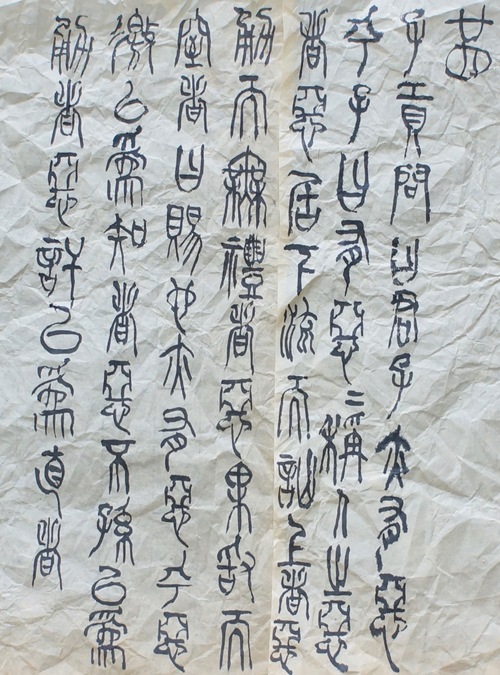 廿四
子貢問曰君子亦有惡
乎子曰有惡〻稱人之惡
者惡居下流而訕上者惡
勇而無禮者惡果敢而
窒者曰賜也亦有惡乎惡
徼以為知者惡不孫以為
勇者惡訐以為直者